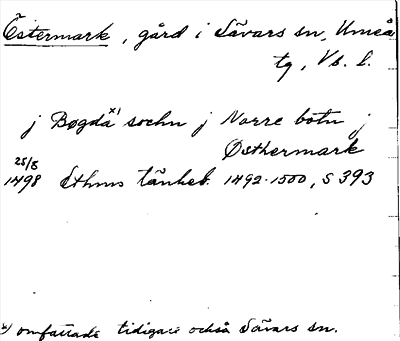 Östermark, gård i Sävars sn, Umeå
tg, Vb. l.
j Bøgdå x) sochn j Norre botn j
Østhermark
25/5
1498 Sthms tänkeb. 1492-1500, S 393
x) omfattade tidigare också Sävars sn.